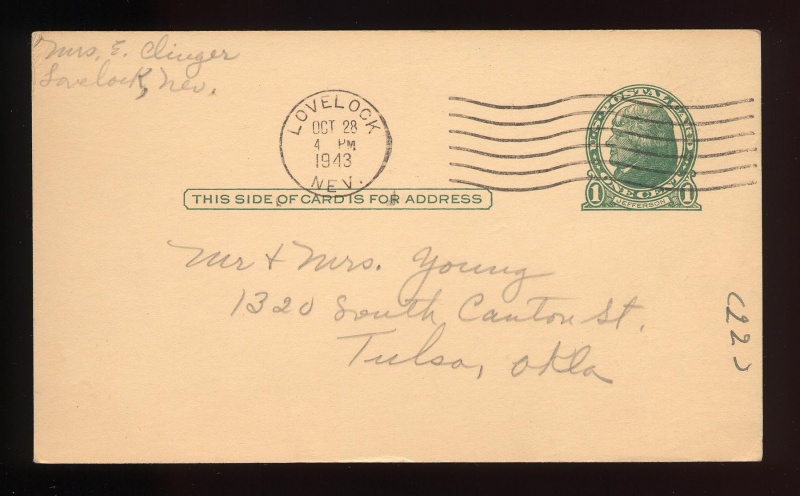 Mrs. E. Clinger
Lovelock, Nev.
LOVELOCK
OCT 28
4 PM
1943
NEV.
U.S. POSTAL CARD
ONE CENT
1 JEFFERSON 1
THIS SIDE OF CARD IS FOR ADDRESS
Mr & Mrs. Young
1320 South Canton St.
Tulsa, Okla
(22)